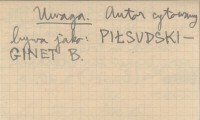 Uwaga. Autor cytowany
bywa jako: PIŁSUDSKI—
GINET B.